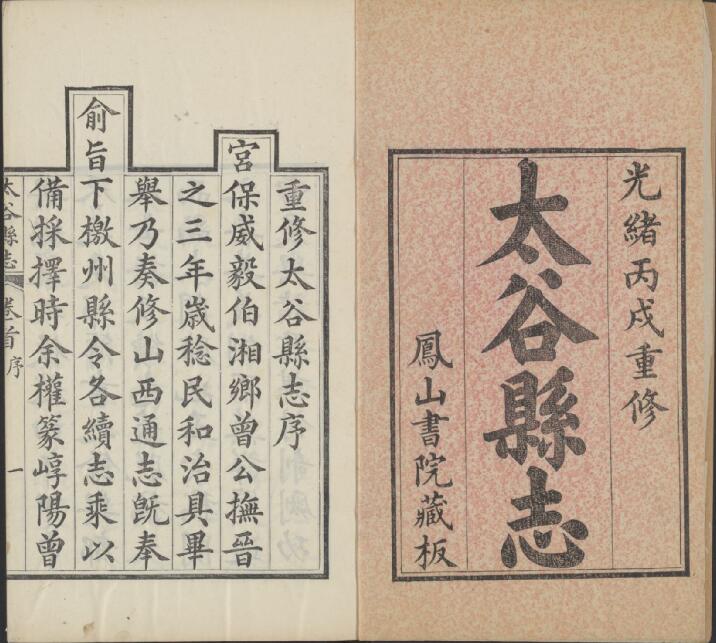 光緒丙戌重修
太谷縣志
鳳山書院藏板
重修太谷縣志序
宮保威毅伯湘鄉曾公撫晉
之三年歲稔民和治具畢
舉乃奏修山西通志旣奉
俞旨下檄州縣令各續志乘以
備採擇時余權篆崞陽曾
太谷縣志 卷首 序 一